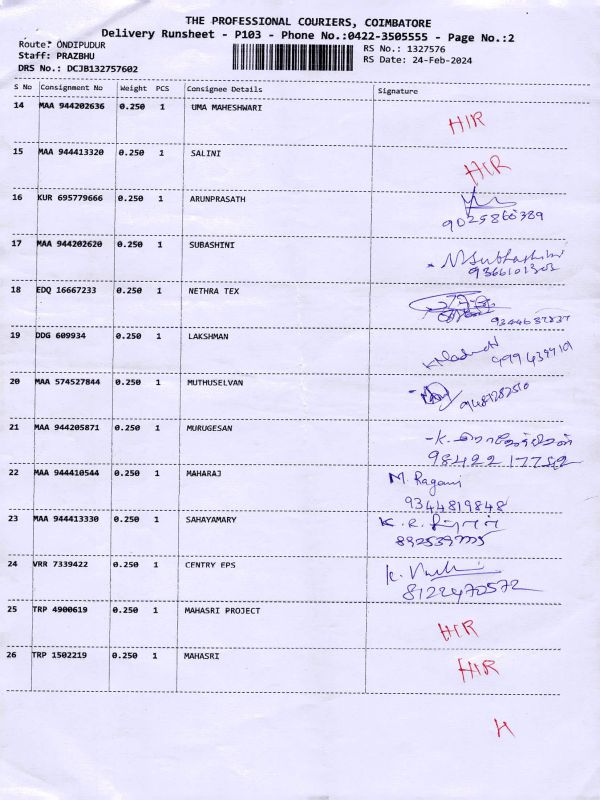 THE PROFESSIONAL COURIERS, COIMBATORE
Delivery Runsheet - P103 - Phone No.:0422-3505555 - Page No.:2
Route: ONDIPUDUR
RS No.: 1327576
Staff: PRAZBHU
RS Date: 24-Feb-2024
DRS No.: DCJB132757602
S No Consignment No Weight PCS Consignee Details Signature
14 MAA 944202636 0.250 1 UMA MAHESHWARI
HIR
15 MAA 944413320 0.250 1 SALINI
HIR
16 KUR 695779666 0.250 1 ARUNPRASATH
9025860389
17 MAA 944202620 0.250 1 SUBASHINI
M Subhashini
9366101303
18 EDQ 16667233 0.250 1 NETHRA TEX
9344637837
19 DDG 609934 0.250 1 LAKSHMAN
20 MAA 574527844 0.250 1 MUTHUSELVAN
21 MAA 944205871 0.250 1 MURUGESAN
9842217752
22 MAA 944410544 0.250 1 MAHARAJ
M. Ragavi
9344819848
23 MAA 944413330 0.250 1 SAHAYAMARY
K. R.
24 VRR 7339422 0.250 1 CENTRY EPS
K.
8122470572
25 TRP 4900619 0.250 1 MAHASRI PROJECT
HIR
26 TRP 1502219 0.250 1 MAHASRI
HIR
H